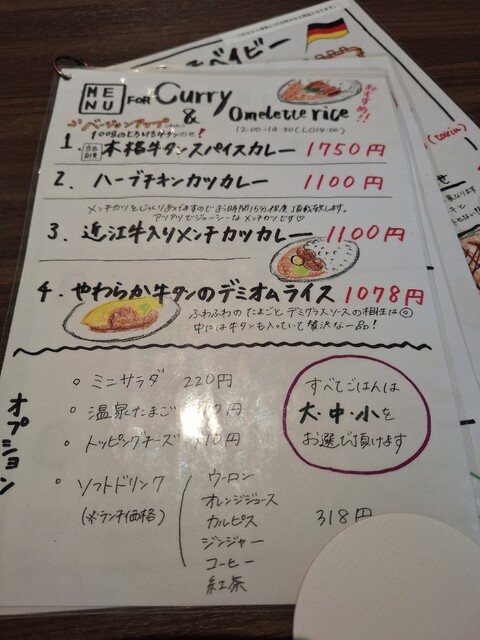 ベイビー
MENU FOR Curry & Omelette rice
おすすめ!!
12:00-14:30(LO14:00)
バージョンアップ
100gのとろける牛タンのせ!
1. 本格牛タンスパイスカレー 1750円
2. ハーブチキンカツカレー 1100円
メンチカツをじっくりあげますのでお時間15分程度頂戴致します。
アツアツでジューシーなメンチカツです♡
3. 近江牛入りメンチカツカレー 1100円
4. やわらか牛タンのデミオムライス 1078円
ふわふわのたまごとデミグラスソースの相性は◎
中には牛タンも入っていて贅沢な一品!
オプション
○ ミニサラダ 220円
○ 温泉たまご 110円
○ トッピングチーズ 110円
○ ソフトドリンク
(※ランチ価格)
ウーロン
オレンジジュース
カルピス
ジンジャー
コーヒー
紅茶
318円
すべてごはんは
大・中・小を
お選び頂けます